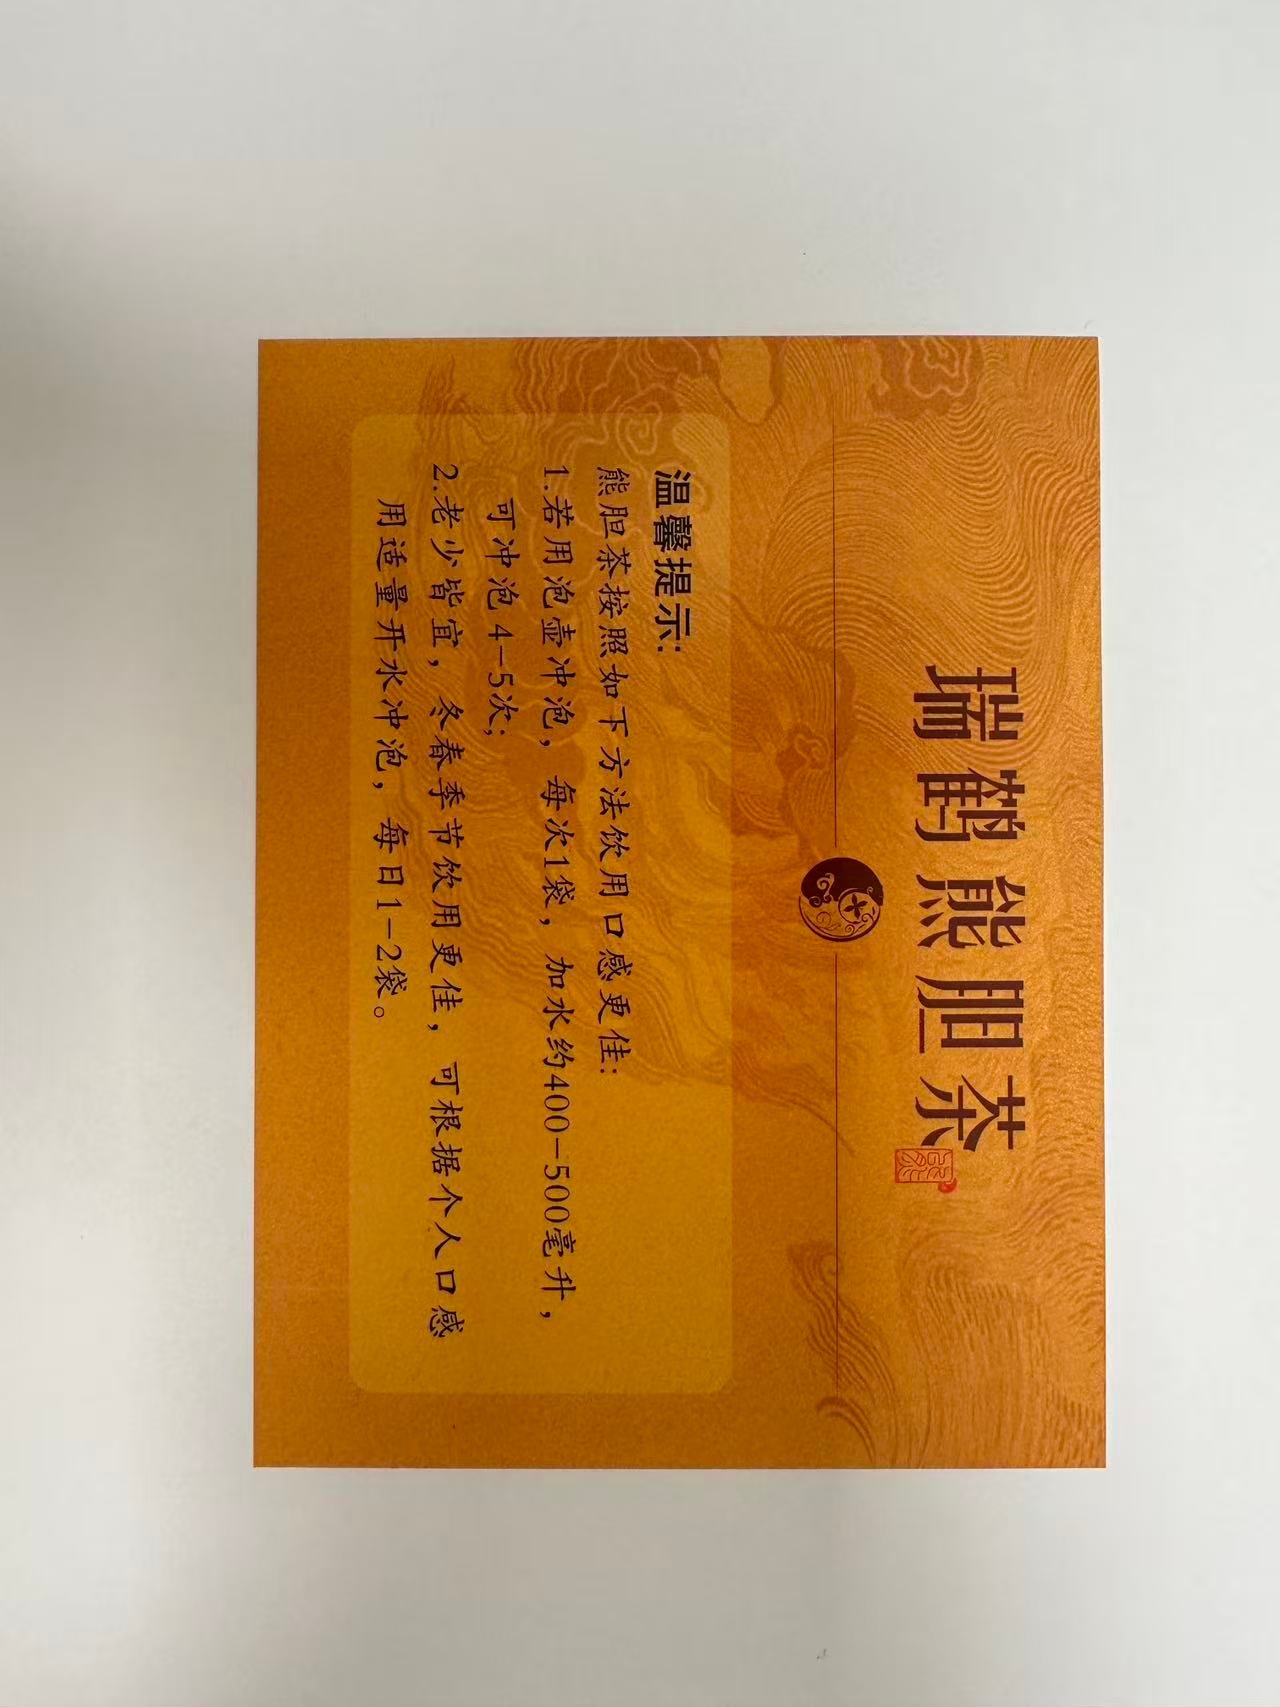 瑞鹤熊胆茶
温馨提示:
熊胆茶按照如下方法饮用口感更佳:
1.若用泡壶冲泡，每次1袋，加水约400-500毫升，
可冲泡4-5次;
2.老少皆宜，冬春季节饮用更佳，可根据个人口感
用适量开水冲泡，每日1-2袋。